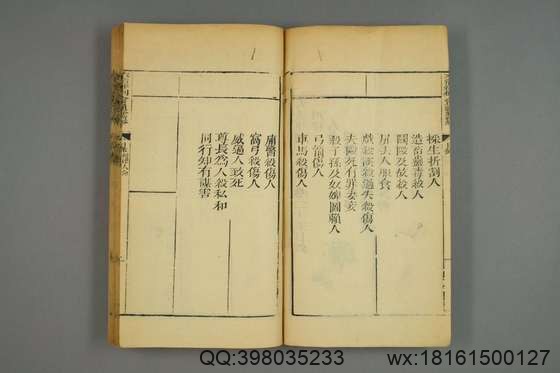 採生折割人
造畜蠱毒殺人
鬬毆及故殺人
屏去人服食
戲殺誤殺過失殺傷人
夫毆死有罪妻妾
殺子孫及奴婢圖賴人
弓箭傷人
車馬殺傷人
庸醫殺傷人
窩弓殺傷人
威逼人致死
尊長為人殺私和
同行知有謀害
QQ:398035233
wx:18161500127